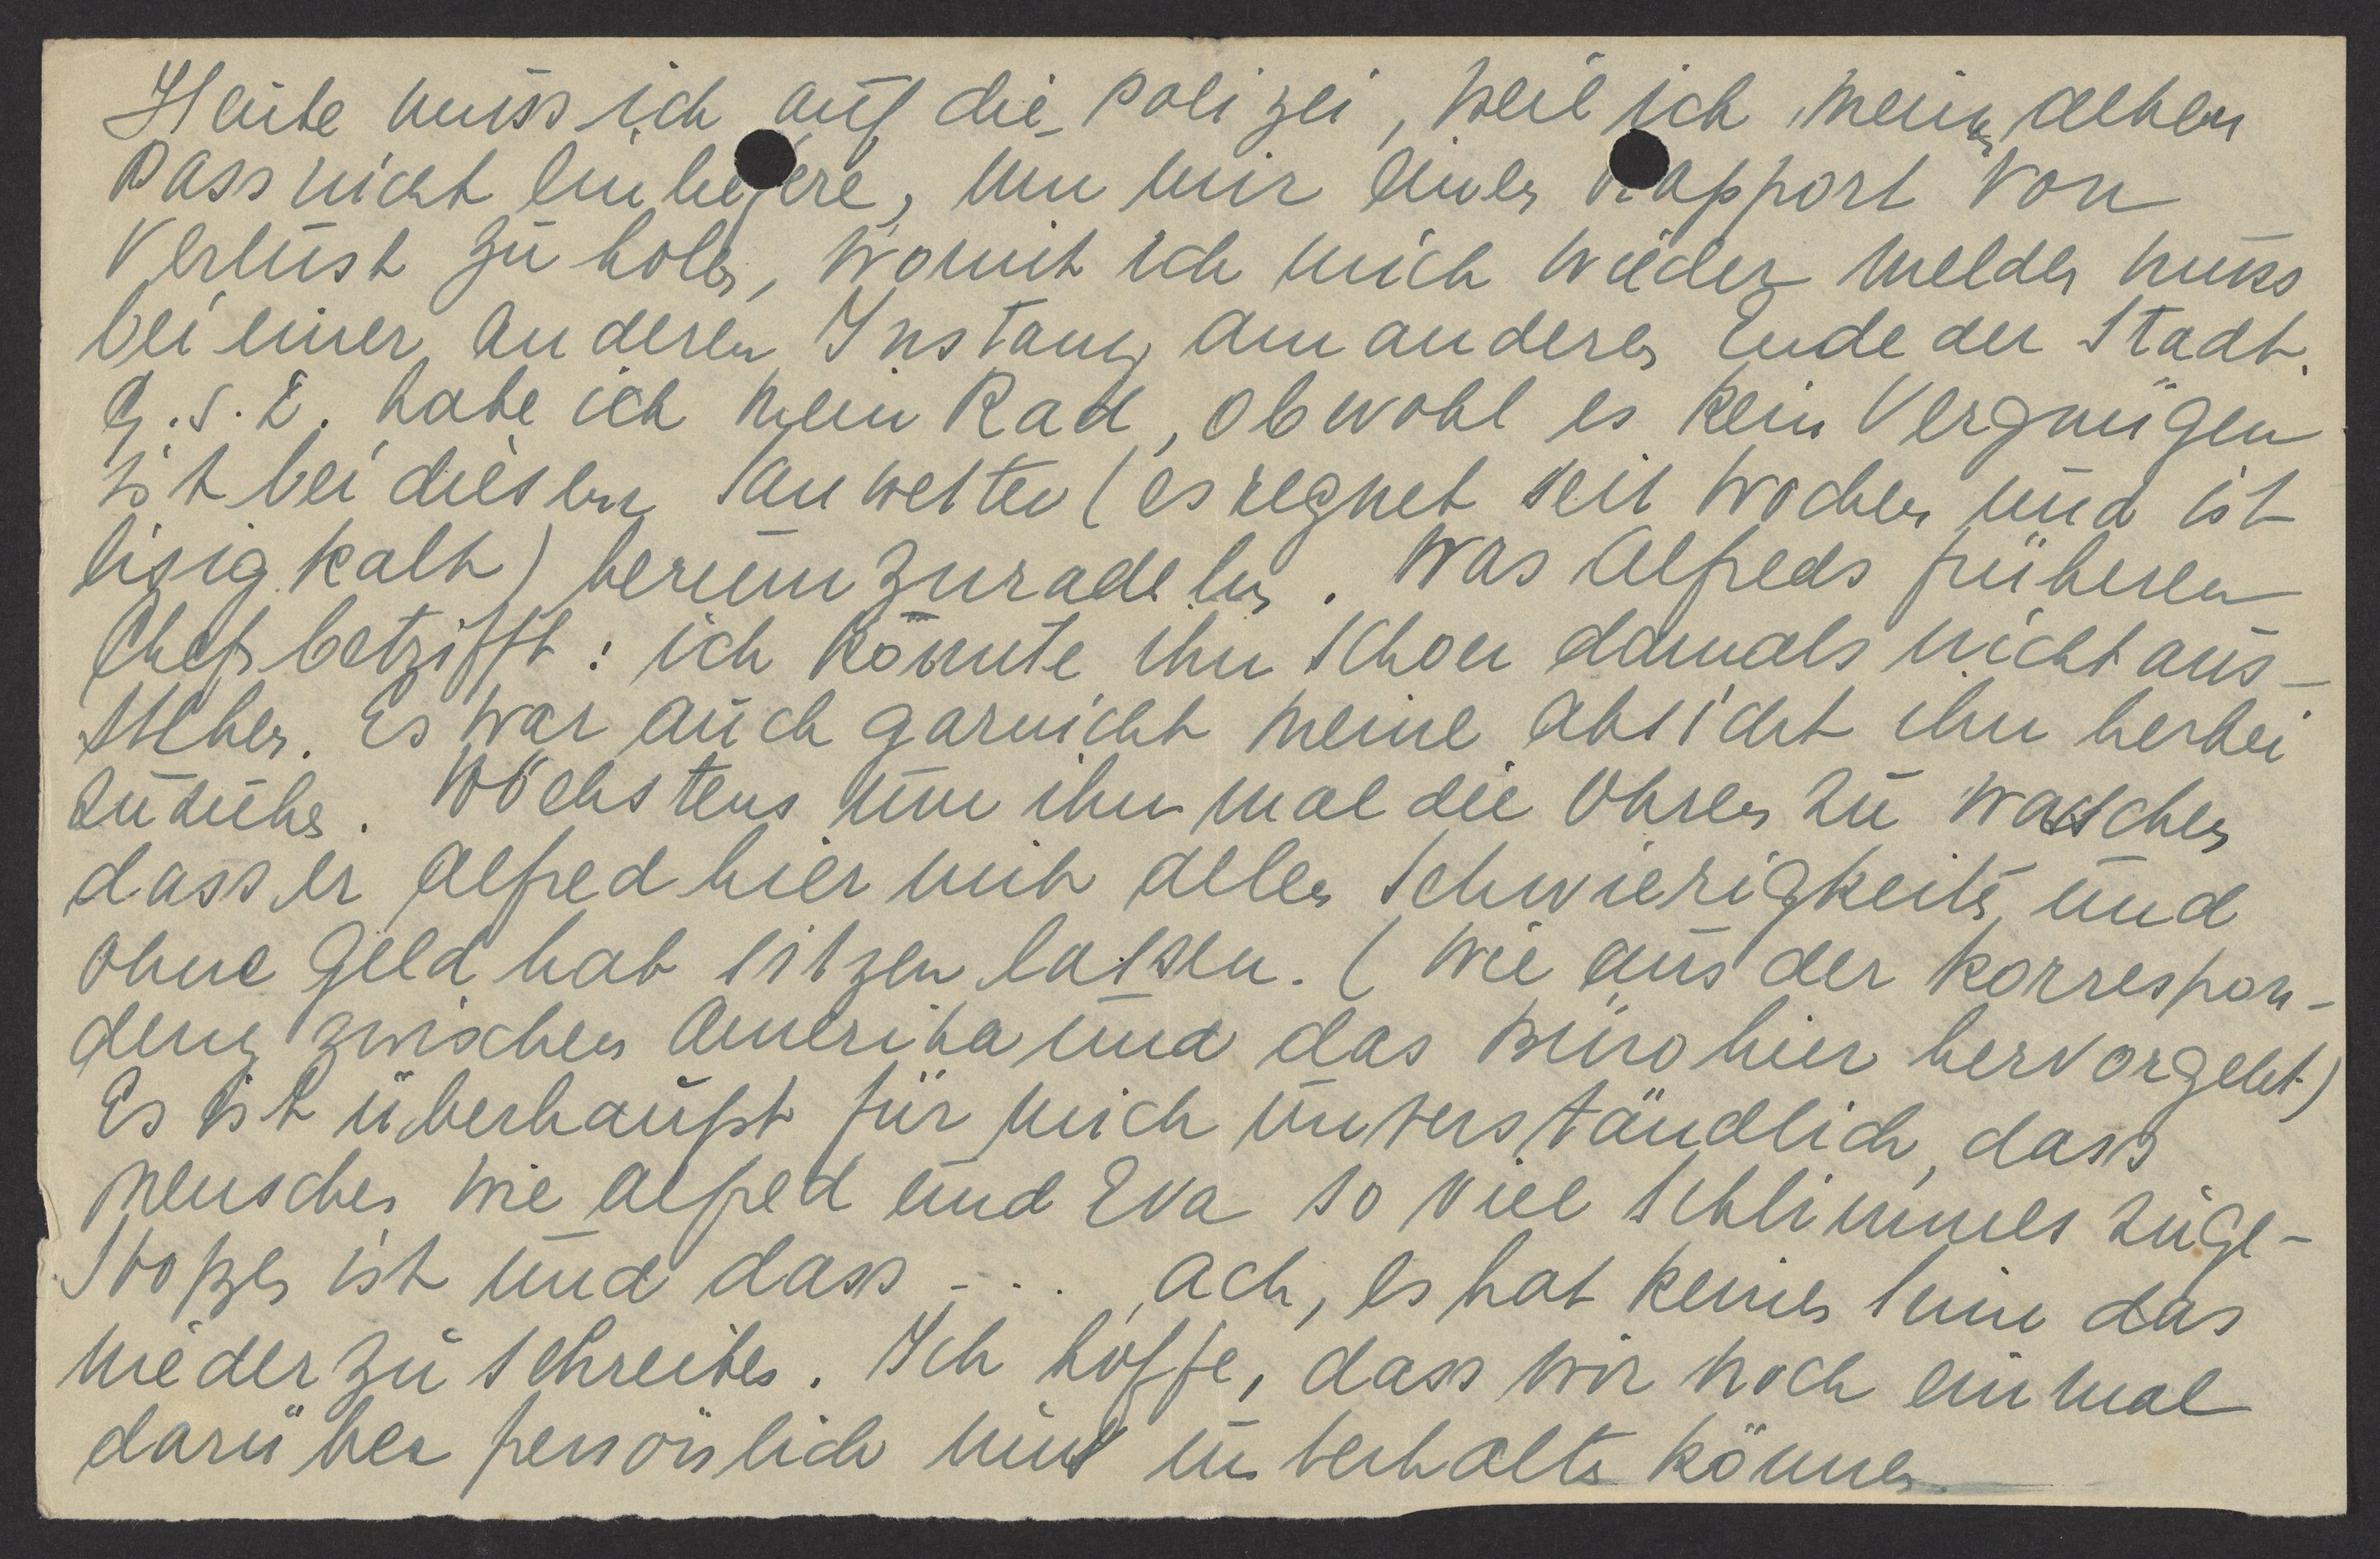 Heute muss ich auf die Polizei, weil ich meinen alten
Pass nicht einliefere, um mir einen Rapport von
Verlust zu holen, womit ich mich wieder melden muss
bei einer anderen Instanz am anderen Ende der Stadt.
G.s.D. habe ich mein Rad, obwohl es kein Vergnügen
ist bei diesem Sauwetter (es regnet seit Wochen und ist
eisig kalt) herumzuradeln. Was Alfreds früheren
Chef betrifft: ich konnte ihn schon damals nicht aus-
stehen. Es war auch garnicht meine Absicht ihn herbei
zu ziehen. Höchstens um ihn mal die Ohren zu waschen
dass er Alfred hier mit allen Schwierigkeiten und
ohne Geld hat sitzen lassen. (Wie aus der Korrespon-
denz zwischen Amerika und das Büro hier hervorgeht)
Es ist überhaupt für mich unverständlich, dass
Menschen wie Alfred und Eva so viel Schlimmes zuge-
stossen ist und dass ... ach, es hat keinen Sinn das
niederzuschreiben. Ich hoffe, dass wir noch einmal
darüber persönlich uns unterhalten können.